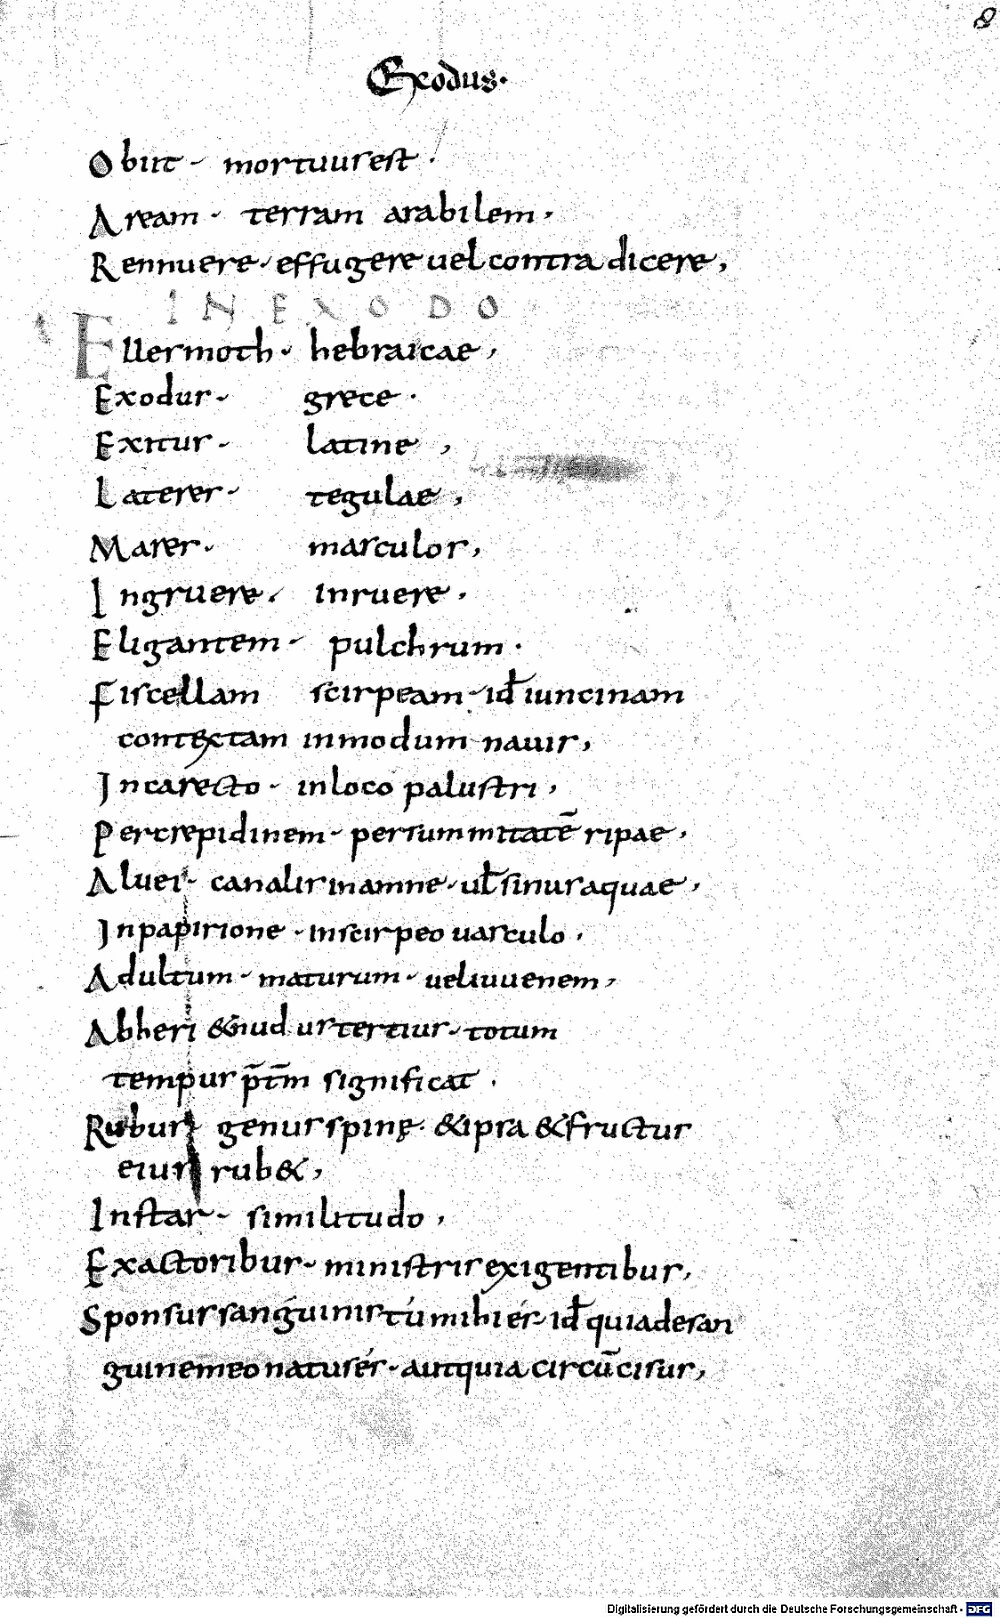 8
Exodus.
Obiit - mortuus est.
Aream. terram arabilem.
Rennuere. effugere uel contra dicere,
IN EXODO
Ellesmoth. hebraicae,
Exodus. grece.
Exitus. latine,
Lateres. tegulae,
Mares. masculos,
Ingruere. inruere.
Eligantem. pulchrum.
Fiscellam scirpeam. id̄ iuncinam
contextam in modum nauis,
Incarecto. inloco palustri,
Per crepidinem. per summitatē ripae,
Aluei. canalis in amne. ul̄ sinus aquae,
In papirione. in scirpeo uasculo,
Adultum. maturum. uel iuuenem,
Abheri & nudustertius. totum
tempus p̄t̄m significat.
Rubus genus spinę. & ipsa & fructus
eius rub&,
Instar. similitudo,
Exactoribus. ministris exigentibus,
Sponsus sanguinis tú mihi és. id̄ quia de san
guine meo natus és. aut quia circū cisus,
Digitalisierung gefördert durch die Deutsche Forschungsgemeinschaft - DFG